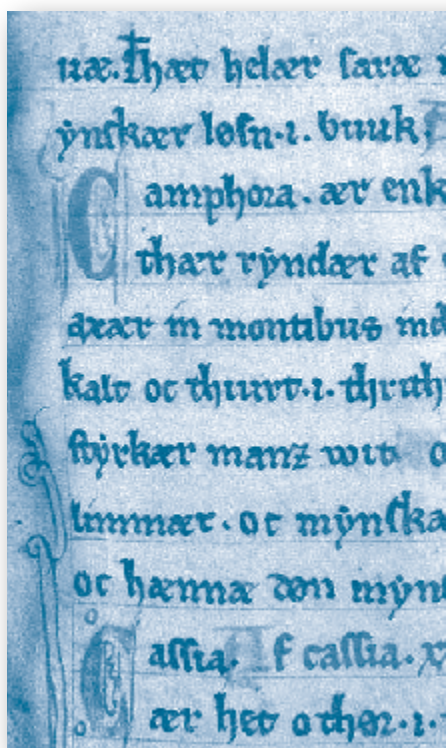 uæ. Thæt helær saræ
ẏnskær løsn. i. buuk.
Camphora. ær enk
thar rẏndær af
axær in montibus
kalt oc thiurt. i. thrith
stẏrkær manz wit
limmær. oc mẏnska
oc hænnæ don mẏn
Cassia. Af cassia.
ær het oc thør. i.